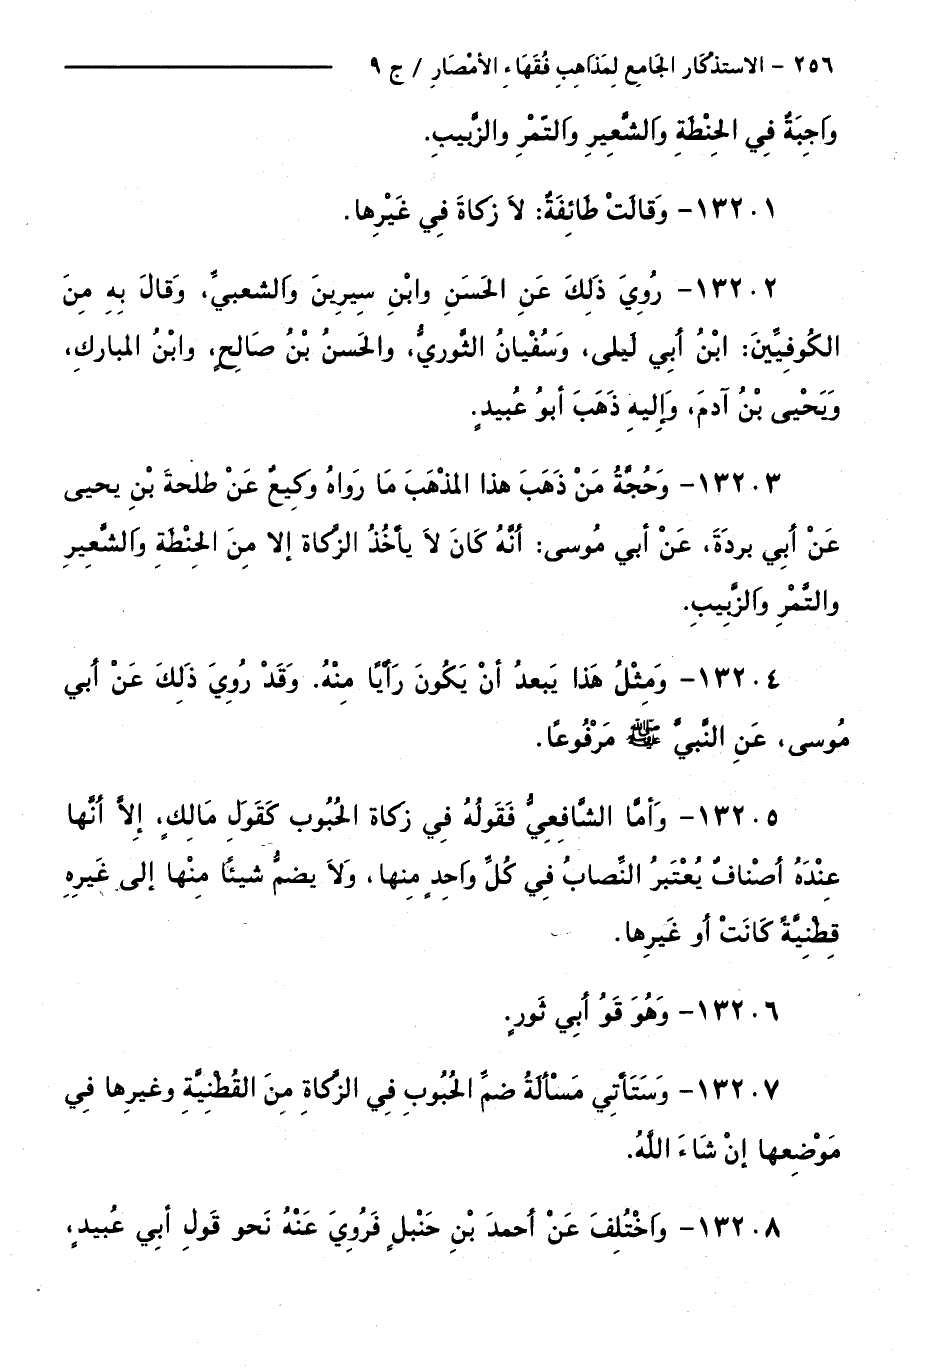 ٢٥٦ - الاستذْكَار الجَامِع لِمَذَاهِبِ فُقَهَاء الأمْصَارِ / ج ٩
واَجِبَةٌ فِي الحِنْطَةِ واَلشَّعِيرِ واَلتّمْرِ والزَّبِيبِ.
١٣٢٠١- وَقالَتْ طَائِفَةٌ: لاَ زكاةَ فِي غَيْرِها.
١٣٢٠٢- رُوِيَ ذَلِكَ عَنِ الحَسَنِ وابْنِ سِيرِينَ واَلشعبيِّ، وَقالَ بِهِ مِنَ
الكُوفِيِّينَ: ابْنُ أبِي لَيلى، وَسُفْيانُ الثَّوريُّ، والحَسنُ بْنُ صَالِحٍ، وابْنُ المباركِ،
وَيَحْيى بْنُ آدمَ، وَإِليهِ ذَهَبَ أبوُ عُبيدٍ.
١٣٢٠٣- وَحُجَّةُ مَنْ ذَهَبَ هذا المذْهَبَ مَا رَواهُ وكَيِعٌ عَنْ طلحةَ بْنِ يحيى
عَنْ أبِي بردَةَ، عَنْ أبي مُوسى: أنَّهُ كَانَ لاَ يأخُذُ الزَّكاة إلا مِنَ الحِنْطَةِ واَلشَّعيرِ
والتَّمْرِ واَلزَّبِيبِ.
١٣٢٠٤- وَمِثْلُ هَذا يَبعدُ أنْ يَكُونَ رَأيًا مِنْهُ. وَقَدْ رُوِيَ ذَلِكَ عَنْ أبي
مُوسى، عَنِ النَّبيِّ ﷺ مَرْفُوعًا.
١٣٢٠٥- وَأمَّا الشَّافِعِيُّ فَقَولُهُ فِي زكاة الحُبُوب كَقَولِ مَالِكٍ، إِلاَّ أنَّها
عِنْدَهُ أصْنافٌ يُعْتَبرُ النِّصابُ فِي كُلِّ واَحِدٍ مِنها، وَلاَ يضمُّ شيئًا مِنْها إلى غَيرِهِ
قِطْنِيَّةً كَانَتْ أو غَيرِها.
١٣٢٠٦- وَهُوَ قَوُ أبِي ثَورٍ.
١٣٢٠٧- وَسَتَأتي مَسْألَةُ ضمِّ الحُبُوبِ فِي الزَّكاةِ مِنَ القُطْنِيَّةِ وغيرِها فِي
مَوْضِعِها إنْ شَاءَ اللَّهُ.
١٣٢٠٨- واَخْتُلِفَ عَنْ أحمدَ بْنِ حَنْبلٍ فَرُوِيَ عَنْهُ نَحو قَولِ أبي عُبيدٍ،